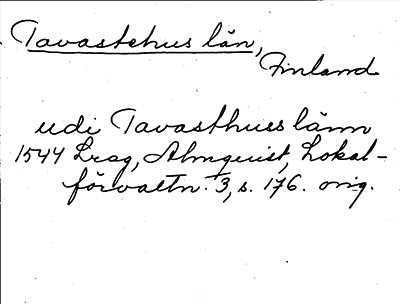 Tavastehus län,
Finland
udi Tavasthuss länn
1544 Lrag, Almquist, Lokal-
förvaltn. 3, s. 176. orig.